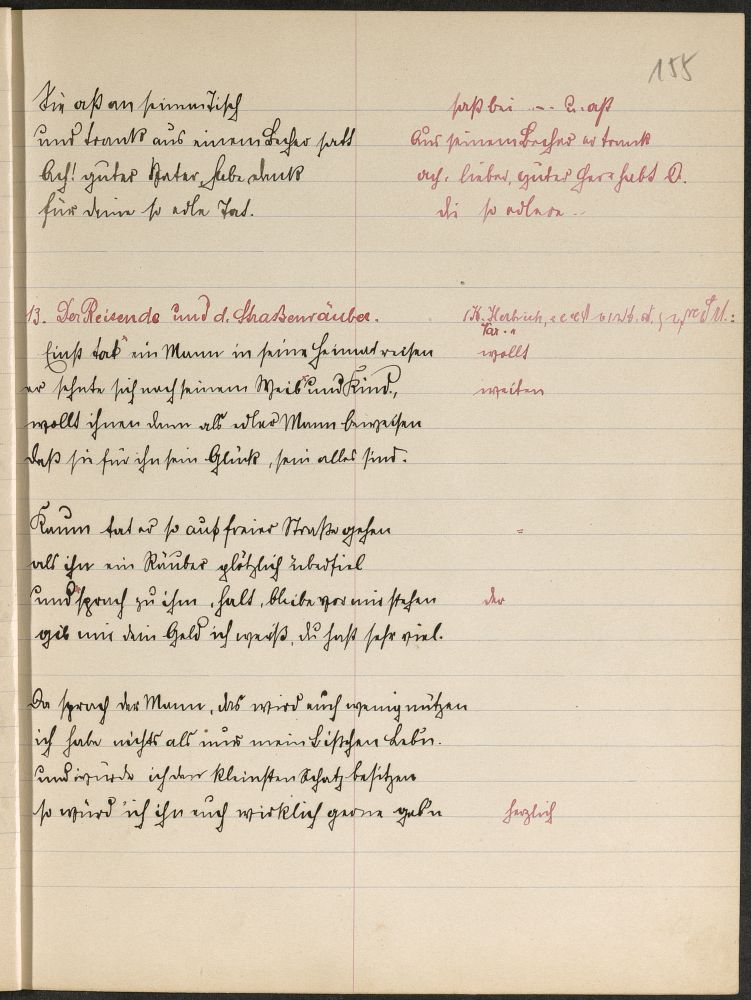 155
Sie aß an seinem Tisch
und trank aus einem Becher satt
Ach! guter Vater, habe dank
für deine so edle Tat.
saß bei --- u. aß
Aus seinem Becher er trank
ach, lieber, guter Herr habt D.
die so edlere ..
13. Der Reisende und d. Straßenräuber.
(K. Herbrich,
Var. "
Einst tat ein Mann in seine Heimat reisen
wollt
er sehnte sich nach seinem Weib und Kind,
weiten
wollt ihnen dann als edler Mann beweisen
daß sie für ihn sein Glück, sein alles sind.
Kaum tat er so auf freier Straße gehen
als ihn ein Räuber plötzlich überfiel
und sprach zu ihm, halt, bleibe vor mir stehen
der
gib mir dein Geld ich weiß, du hast sehr viel.
Da sprach der Mann, das wird euch wenig nützen
ich habe nichts als nur mein bißchen Leb'n.
und würde ich den kleinsten Schatz besitzen
so würd ich ihn euch wirklich gerne geb'n
herzlich